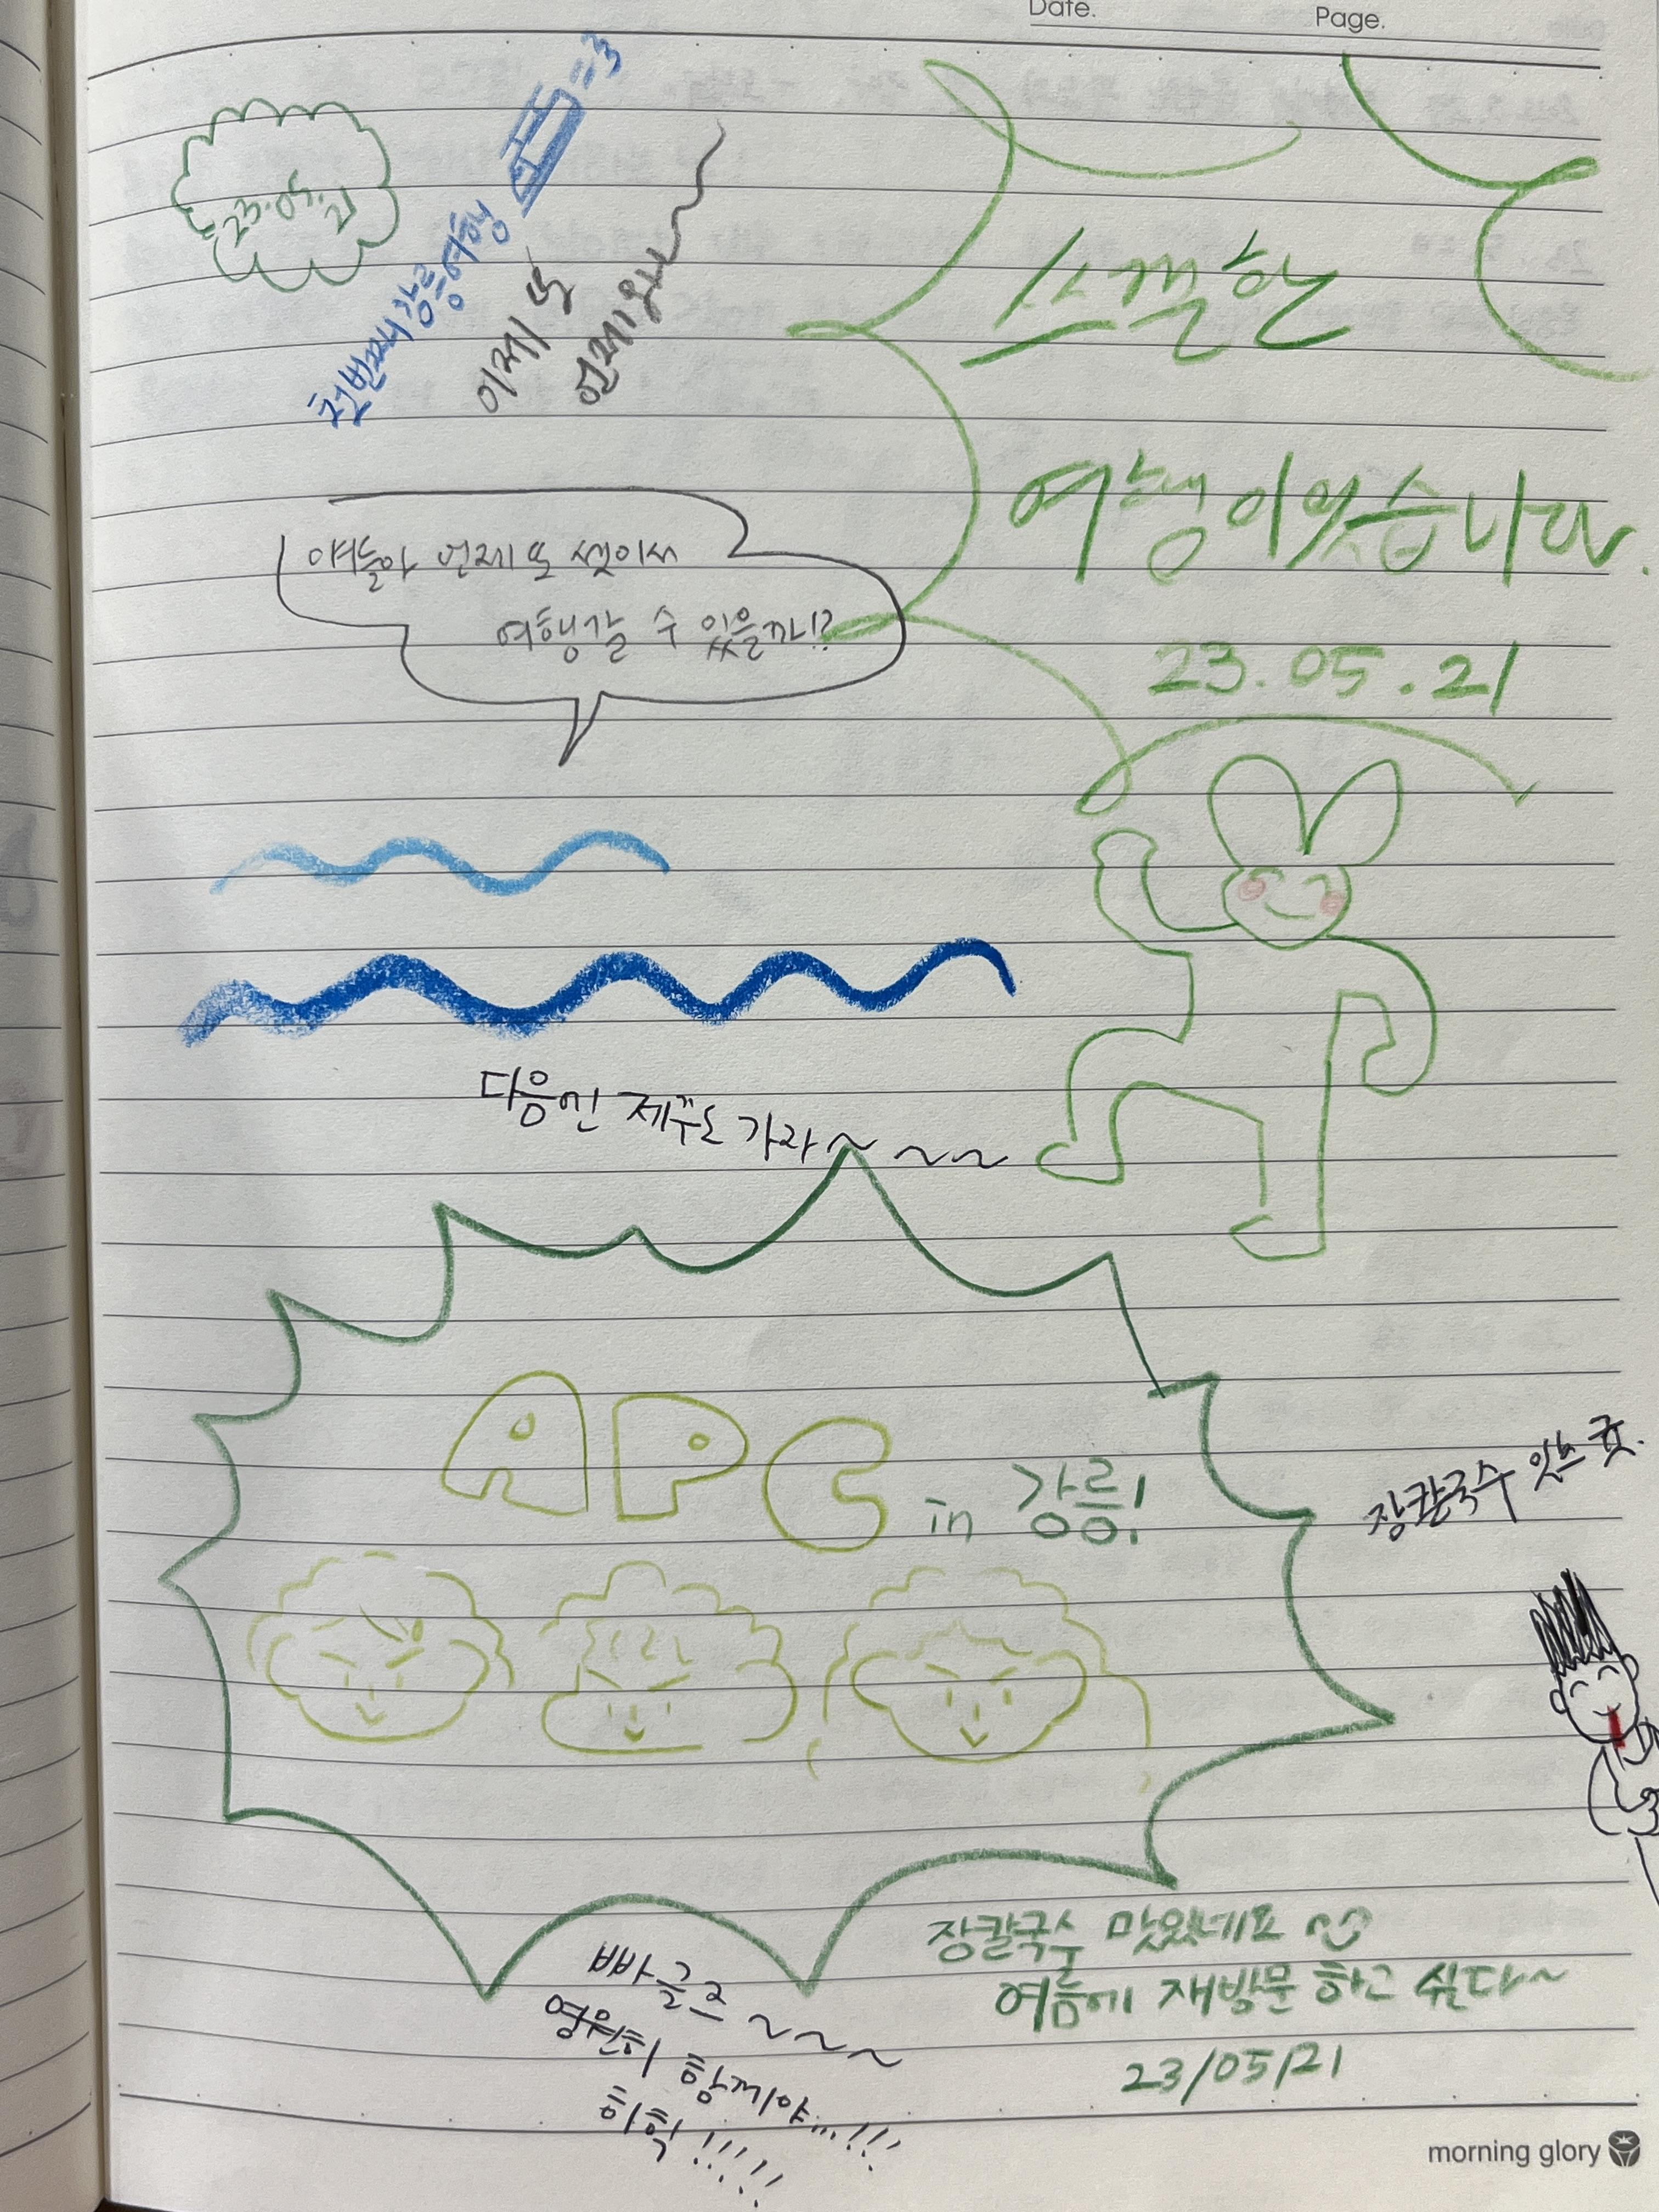 Date.
Page.
23.05.21
첫번째 강릉여행
=3
이제 또
언제와
스펙한
여행이었습니다.
23.05.21
얘들아 언제 또 셋이서
여행갈 수 있을까!?
다음엔 제주도 가자~ ~~
APC in 강릉!
장칼국수
장칼국수 맛있네요
여름에 재방문 하고 싶다~
23/05/21
빠글즈~~~
영원히 함께야...!!!
히힉!!!!!
morning glory